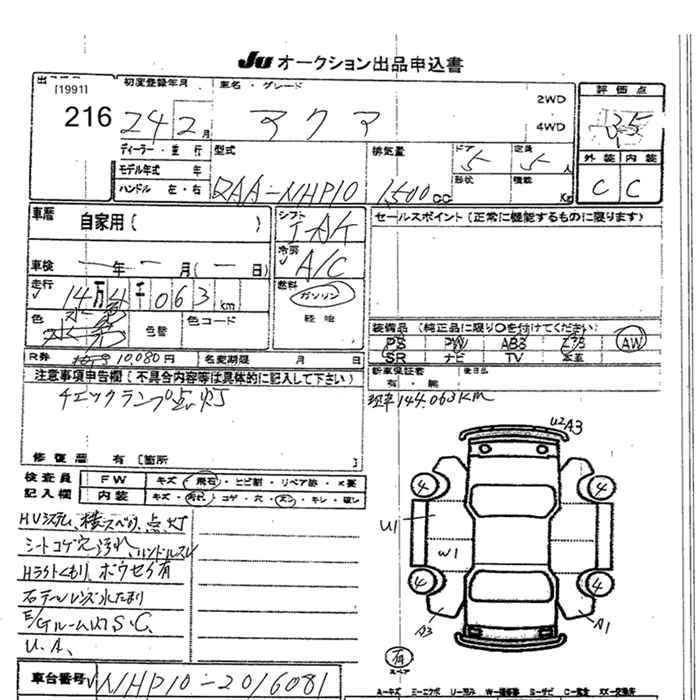 Ju オークション出品申込書
[1991]
216
初度登録年月
24 2月
車名・グレード
アクア
2WD
4WD
評価点
外装 内装
C C
ディーラー・並行
モデル年式 年
ハンドル 左・右
型式
DAA-NHP10
排気量
1,500cc
ドア 5
定員 5人
形状
積載 Kg
車歴 自家用( )
シフト
IAT
冷房
A/C
燃料
ガソリン
軽油
車検 年 月(ー日)
走行
14万4千063km
色
水色
色替
色コード
セールスポイント(正常に機能するものに限ります)
装備品(純正品に限り○を付けてください)
PS PW ABS エアB AW
SR ナビ TV 本革
R券 10,080円 名変期限 月 日
新車保証書 後日出
有・無
注意事項申告欄(不具合内容等は具体的に記入して下さい)
チェックランプ点灯
現車144,063KM
修復歴 有[箇所
検査員記入欄
FW キズ・飛石・ヒビ割・リペア跡・×要
内装 キズ・汚れ・コゲ・穴・スレ・キレ・破レ
HVシステム、横スベリ、点灯
シートコゲ穴、汚れ、ハンドルスレ
Hライトくもり、ボウセイ有
右テールレンズ水たまり
E/GルームスS.C.
U.A.
U2 A3
4 4
U1
W1
4 4
A3 A1
有
スペア
車台番号 NHP10-2016081
A-キズ E-エクボ U-凹み W-補修跡 S-サビ C-腐食 XX-交換済